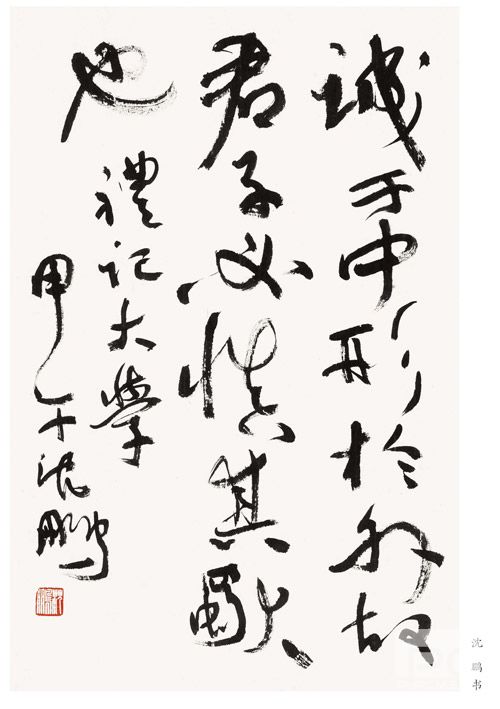 诚于中形於外故
君子必慎其獨
也
禮记大學
甲午沈鹏
沈鹏书